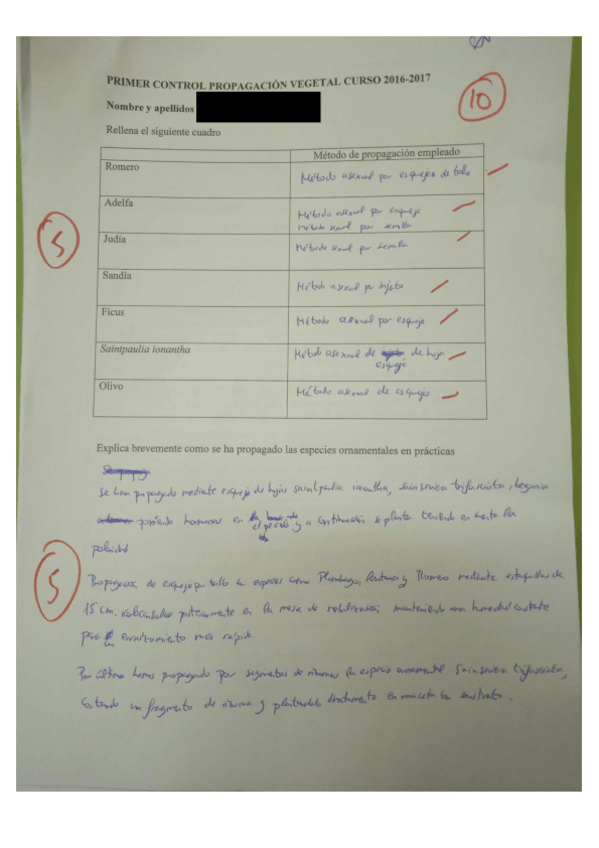 PRIMER CONTROL PROPAGACIÓN VEGETAL CURSO 2016-2017
10
Nombre y apellidos
Rellena el siguiente cuadro
Método de propagación empleado
Romero
Método asexual por esquejes de tallo
Adelfa
Método asexual por esqueje
Método sexual por semilla
5
Judía
Método sexual por semilla
Sandía
Método asexual por injerto
Ficus
Método asexual por esqueje
Saintpaulia ionantha
Método asexual de de hoja
esqueje
Olivo
Método asexual de esquejes
Explica brevemente como se ha propagado las especies ornamentales en prácticas
Se han propagado mediante esqueje de hojas saintpaulia ionantha, Sansevieria trifasciata, begonia
hormonas en el peciolo y a continuación se planta teniendo en cuenta la
polaridad
5
Propagación de esqueje por tallo en especies como Plumbago, y Romero mediante estaquillas de
15 cm, en la mesa de manteniendo una humedad constante
para un enraizamiento mas rapido.
Por último hemos propagado por segmentos de rizomas la especie ornamental Sansevieria trifasciata,
Cortando un fragmento de rizoma y plantandolo directamente en maceta con sustrato.